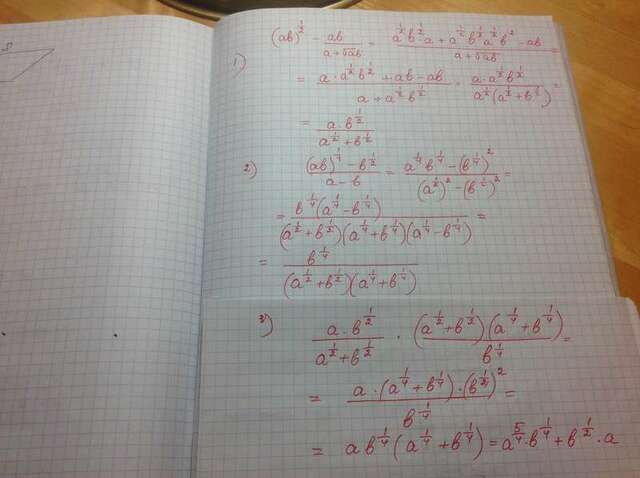 1) (ab)^{1/2} - \frac{ab}{a+\sqrt{ab}} = \frac{a^{1/2} b^{1/2} \cdot a + a^{1/2} b^{1/2} a^{1/2} b^{1/2} - ab}{a+\sqrt{ab}} =
= \frac{a \cdot a^{1/2} b^{1/2} + ab - ab}{a + a^{1/2} b^{1/2}} = \frac{a \cdot a^{1/2} b^{1/2}}{a^{1/2}(a^{1/2} + b^{1/2})} =
= \frac{a \cdot b^{1/2}}{a^{1/2} + b^{1/2}}
2) \frac{(ab)^{1/4} - b^{1/2}}{a - b} = \frac{a^{1/4} b^{1/4} - (b^{1/4})^2}{(a^{1/2})^2 - (b^{1/2})^2} =
= \frac{b^{1/4}(a^{1/4} - b^{1/4})}{(a^{1/2} + b^{1/2})(a^{1/4} + b^{1/4})(a^{1/4} - b^{1/4})} =
= \frac{b^{1/4}}{(a^{1/2} + b^{1/2})(a^{1/4} + b^{1/4})}
3) \frac{a \cdot b^{1/2}}{a^{1/2} + b^{1/2}} \cdot \frac{(a^{1/2} + b^{1/2})(a^{1/4} + b^{1/4})}{b^{1/4}} =
= \frac{a \cdot (a^{1/4} + b^{1/4}) \cdot (b^{1/4})^2}{b^{1/4}} =
= a b^{1/4} (a^{1/4} + b^{1/4}) = a^{5/4} \cdot b^{1/4} + b^{1/2} \cdot a